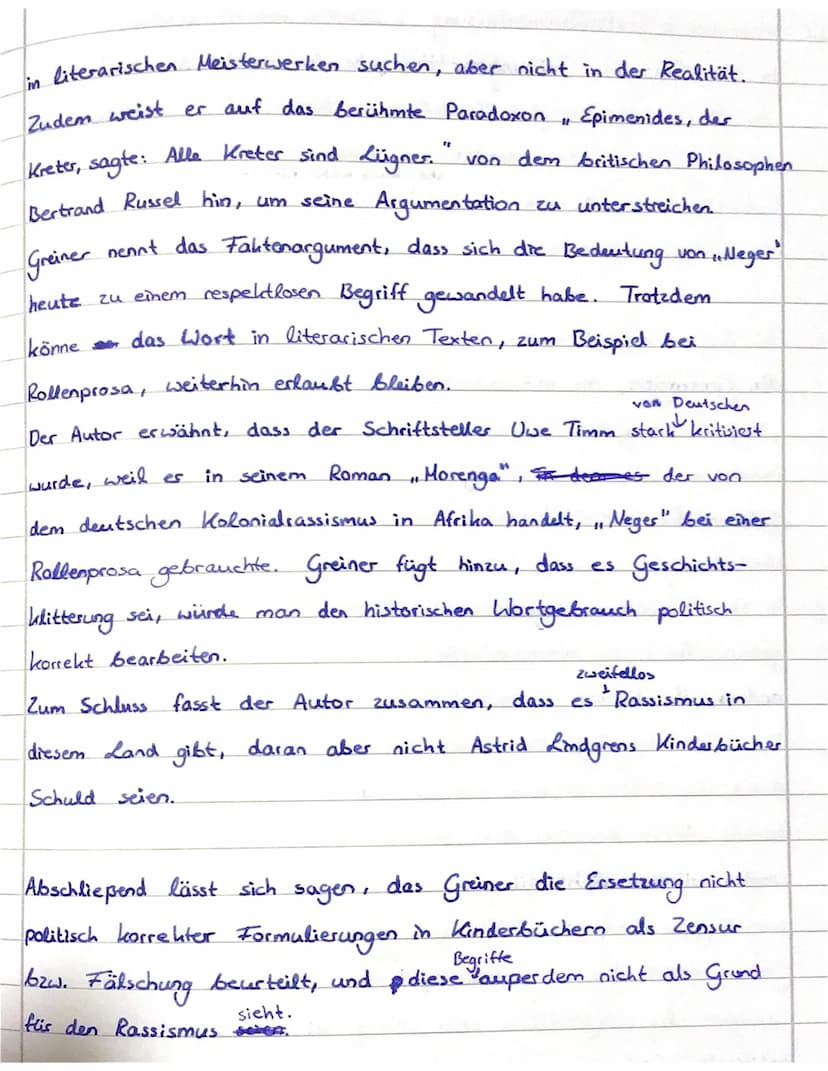 in literarischen Meisterwerken suchen, aber nicht in der Realität.
Zudem weist er auf das berühmte Paradoxon „Epimenides, der
Kreter, sagte: Alle Kreter sind Lügner." von dem britischen Philosophen
Bertrand Russel hin, um seine Argumentation zu unterstreichen.
Greiner nennt das Faktenargument, dass sich die Bedeutung von „Neger"
heute zu einem respektlosen Begriff gewandelt habe. Trotzdem
könne das Wort in literarischen Texten, zum Beispiel bei
Rollenprosa, weiterhin erlaubt bleiben.
von Deutschen
Der Autor erwähnt, dass der Schriftsteller Uwe Timm stark kritisiert
wurde, weil er in seinem Roman „Morenga", der von
dem deutschen Kolonialrassismus in Afrika handelt, „Neger" bei einer
Rollenprosa gebrauchte. Greiner fügt hinzu, dass es Geschichts-
klitterung sei, würde man den historischen Wortgebrauch politisch
korrekt bearbeiten.
zweifellos
Zum Schluss fasst der Autor zusammen, dass es Rassismus in
diesem Land gibt, daran aber nicht Astrid Lindgrens Kinderbücher
Schuld seien.
Abschließend lässt sich sagen, das Greiner die Ersetzung nicht
politisch korrekter Formulierungen in Kinderbüchern als Zensur
Begriffe
bzw. Fälschung beurteilt, und diese außerdem nicht als Grund
sieht.
für den Rassismus